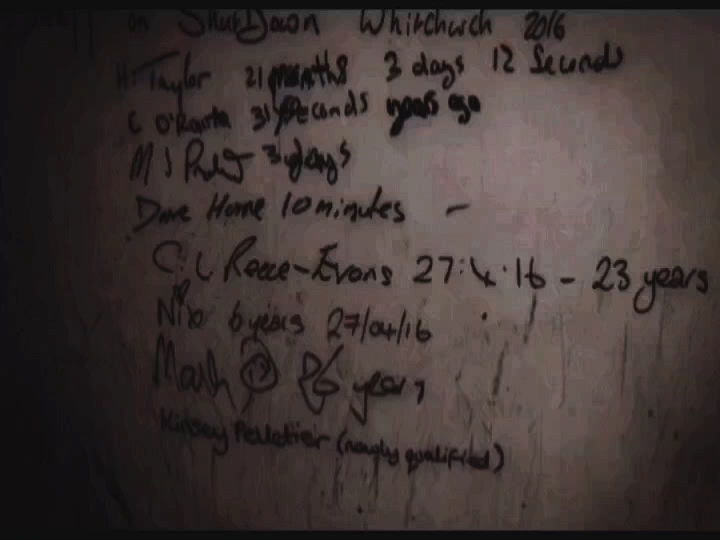 on ShutDown Whitchurch 2016
H. Taylor 21 months 3 days 12 Seconds
C O'Rourke 31 seconds years ago
M J 3 days
Dave Horne 10 minutes –
C. L Reece-Evans 27:4.16 – 23 years
Nix 6 years 27/04/16
Mark 26 years
Kinsey Pelletier (newly qualified)